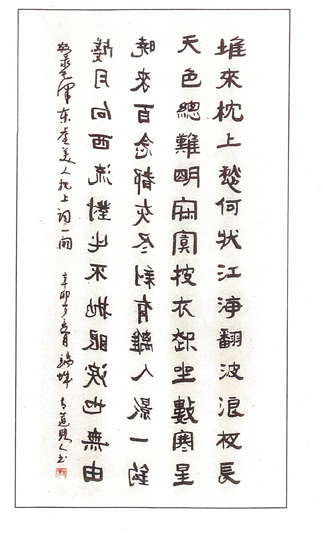 堆來枕上愁何狀江海翻波浪夜長
天色總難明寂寞披衣起坐數寒星
曉來百念都灰尽剩有離人影一鈎
殘月向西流對此不抛眼淚也無由
毛泽东虞美人枕上词一阕 辛卯